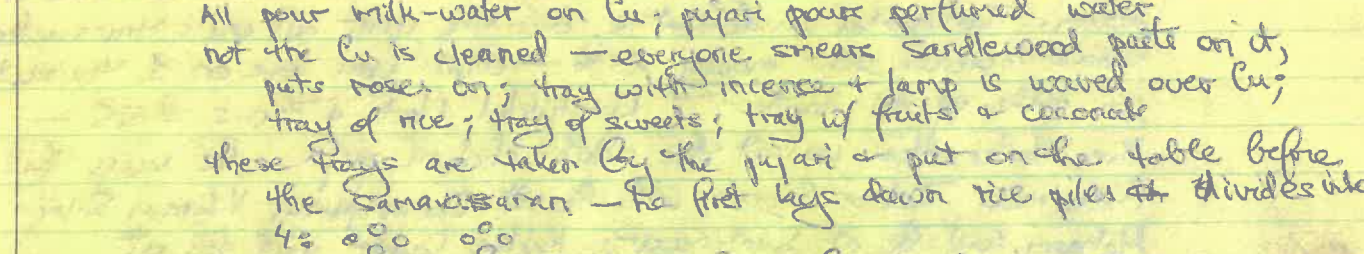 All pour milk-water on Cu; pujari pours perfumed water
not the Cu is cleaned — everyone smears Sandlewood paste on it,
puts roses on; tray with incense + lamp is waved over Cu;
tray of rice; tray of sweets; tray w/ fruits + coconuts
these trays are taken by the pujari + put on the table before
the Samavasaran — he first lays down rice piles divides into
4: